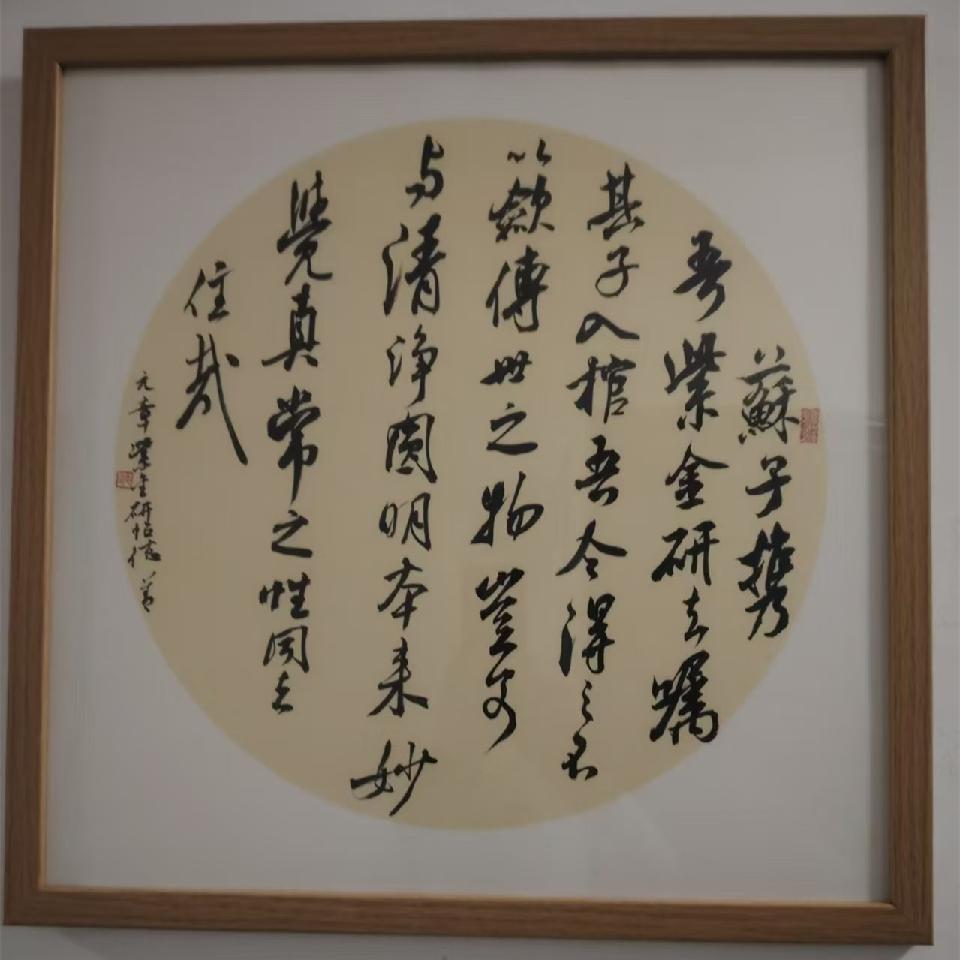 蘇子攜
吾紫金研去嘱
其子入棺吾今得之不
以歛傳世之物豈可
与清淨圓明本来妙
覺真常之性同去
住哉
元章紫金研帖